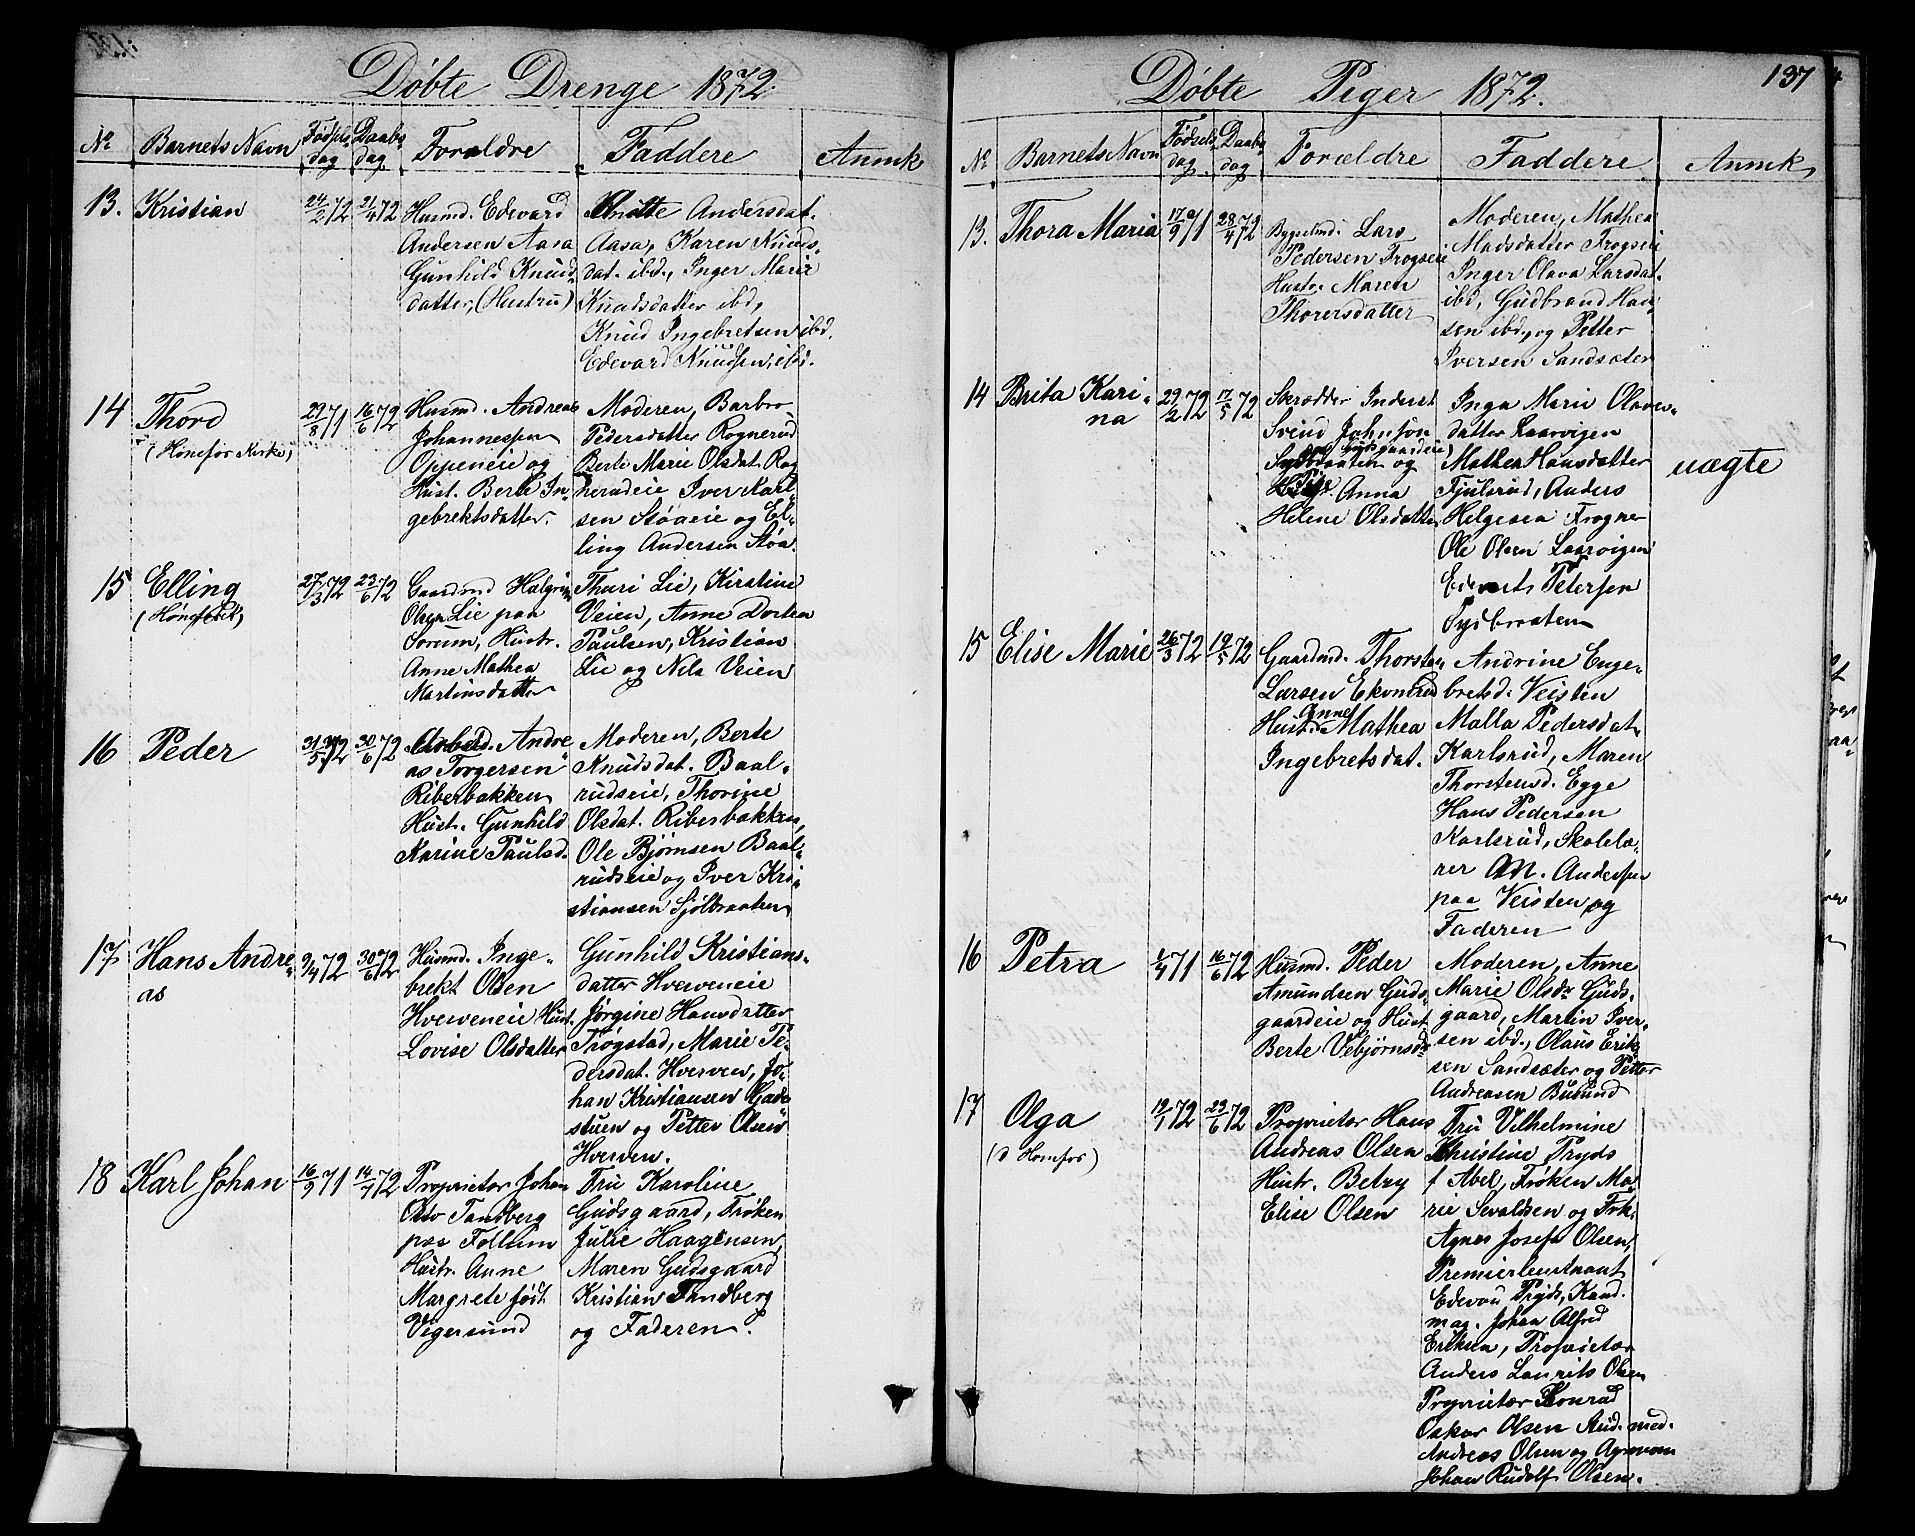 Døbte Drenge 1872.
No Barnets Navn Fødsels dag Daabs dag Forældre Faddere Anmk
13. Kristian 24/2 72 21/4 72
Husmd. Edevard
Andersen Aasa
Gunhild Knuds
datter, (Hustru)
Andersdat.
Aasa, Karen Knuds,
dat. ibd., Inger Marie
Knudsdatter ibd,
Knud Ingebretsen ibd.
Edevard Knudsen, ibd.
14 Thord 29/8 71 16/6 72
(Hønefos Kirke)
Husmd. Andreas
Johannessen
Oppeneie og
Hust. Berte In-
gebrektsdatter.
Moderen, Barbro
Pedersdatter Rognerud
Berte Marie Olsdat. Rog
neradeie Iver Karl-
sen Støaeie og El-
ling Andersen Støa.
15 Elling 27/3 72 23/6 72
Gaardmd Halgrim
Olsen Lie paa
Sorum, Hustr.
Anne Mathea
Martinsdatter
Thuri Lie, Kirstine
Veien, Anne Dortea
Paulsen, Kristian
Lie og Nils Veien
16 Peder 31/5 72 30/6 72
Arbeid. Andre
as Torgersen
Riberbakken
Hust. Gunhild
Karine Paulsd.
Moderen, Berte
Knudsdat. Baal-
rudseie, Thorine
Olsdat. Riberbakken,
Ole Bjørnsen Baal-
rudseie og Iver Kri-
stiansen Sjølbraaten
17 Hans Andre- 9/4 72 30/6 72
as
Husmd. Inge-
brekt Olsen
Hverveneie Hust.
Lovise Olsdatter
Gunhild Kristians-
datter Hverveneie
Jørgine Hansdatter
Trøgstad, Marie Pe-
dersdat. Hverven, Jo-
han Kristiansen
stuen og Petter Olsen
Hverven.
18 Karl Johan 16/9 71 14/7 72
Proprietær Johan
Otto Tandberg
paa Follum
Hustr. Anne
Margrete født
Vigersund
Fru Karoline
Gudsgaard, Frøken
Julie Haagensen,
Maren Gudsgaard
Kristian Tandberg
og Faderen.
Døbte Piger 1872. 137
No Barnets Navn Fødsels dag Daabs dag Forældre Faddere Anmk
13. Thora Maria 17/9 71 28/4 72
Bygselmd. Lars
Pedersen Frogseie
Hustr. Maren
Thorersdatter
Moderen, Mathea
Madsdatter Frogseie
Inger Olava Larsdat.
ibd, Gudbrand Han-
sen ibd, og Petter
Iversen Sandsæter
14 Brita Kari- 29/2 72 17/5 72
na
Skrædder Inderst
Svend Johnson
Sydbraaten og
Anna
Helene Olsdatter
Inga Marie Olaves-
datter Laarvigen
Mathea Hansdatter
Fjulsrud, Anders
Helgesen Frogner
Ole Olsen Laarvigen
Petersen
Sydbraaten
uægte
15 Elise Marie 26/3 72 19/5 72
Gaardmd. Thorsten
Larsen Ekornrud
Hust. Anne Mathea
Ingebretsdat.
Andrine Enge-
bretsd. Veisten
Malla Pedersdat.
Karlsrud, Maren
Thorstensd. Egge
Hans Pedersen
Karlsrud, Skolelæ-
rer M. Andersen
paa Veisten og
Faderen
16 Petra 1/4 71 16/6 72
Husmd. Peder
Amundsen Guds-
gaardeie og Hust
Berte Vebjørnsdr
Moderen, Anne
Marie Olsdr Guds-
gaard, Martin Iver-
sen ibd., Olaus Erik-
sen Sandsæter og Petter
Andreasen Busund
17 Olga 19/1 72 23/6 72
(D Hønefos)
Proprietær Hans
Andreas Olsen
Hustr. Betzy
Elise Olsen
Fru Vilhelmine
Khristine Pryds
f Abel, Frøken Ma-
rie Sevaldsen og Frk.
Agnes Josefa Olsen,
Premierleutnant
Pryds, Kand.
mag. Johan Alfred
Eriksen, Proprietær
Anders Laurits Olsen
Proprietær Konrad
Oskar Olsen Stud. med.
Andreas Olsen og Agronom
Johan Rudolf Olsen.